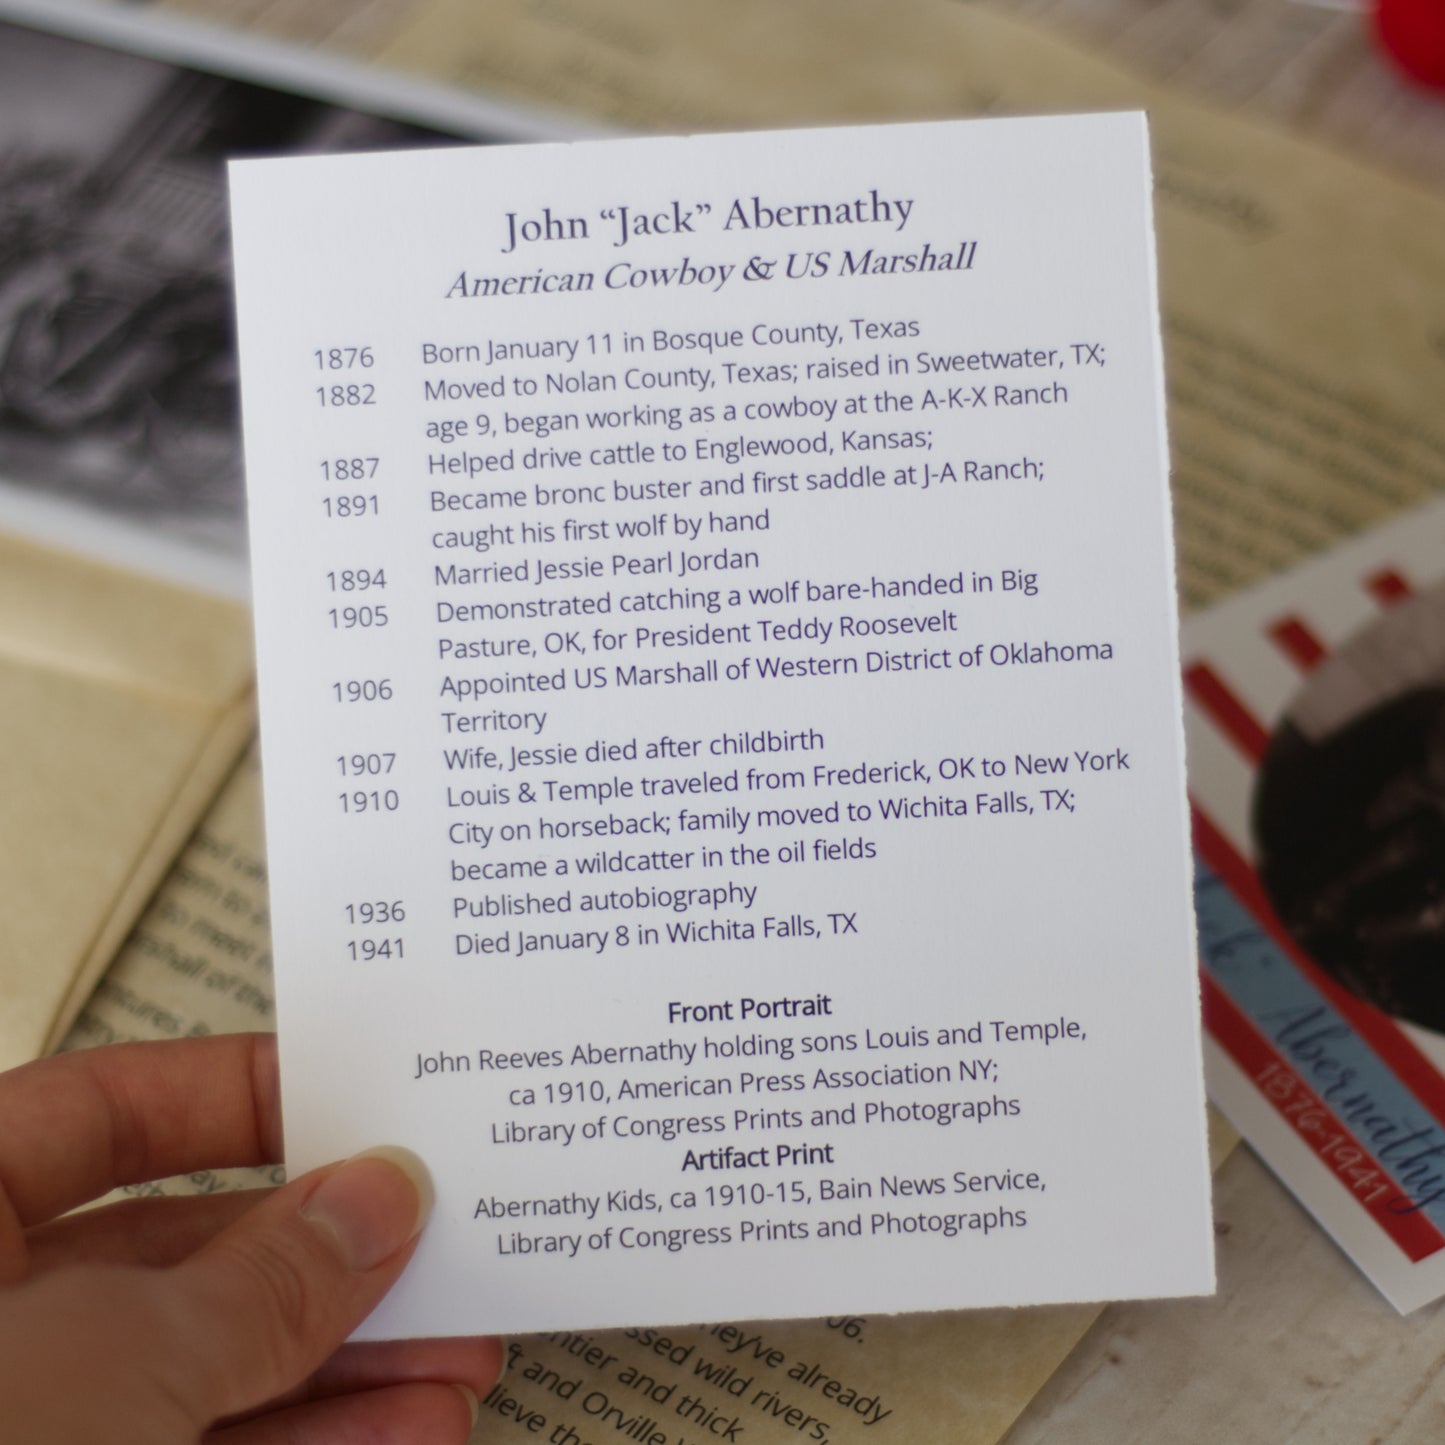 John “Jack” Abernathy
American Cowboy & US Marshall
1876 Born January 11 in Bosque County, Texas
1882 Moved to Nolan County, Texas; raised in Sweetwater, TX;
age 9, began working as a cowboy at the A-K-X Ranch
1887 Helped drive cattle to Englewood, Kansas;
1891 Became bronc buster and first saddle at J-A Ranch;
caught his first wolf by hand
1894 Married Jessie Pearl Jordan
1905 Demonstrated catching a wolf bare-handed in Big
Pasture, OK, for President Teddy Roosevelt
1906 Appointed US Marshall of Western District of Oklahoma
Territory
1907 Wife, Jessie died after childbirth
1910 Louis & Temple traveled from Frederick, OK to New York
City on horseback; family moved to Wichita Falls, TX;
became a wildcatter in the oil fields
1936 Published autobiography
1941 Died January 8 in Wichita Falls, TX
Front Portrait
John Reeves Abernathy holding sons Louis and Temple,
ca 1910, American Press Association NY;
Library of Congress Prints and Photographs
Artifact Print
Abernathy Kids, ca 1910-15, Bain News Service,
Library of Congress Prints and Photographs
Abernathy
1876-1941
already
wild rivers,
and thick
and Orville